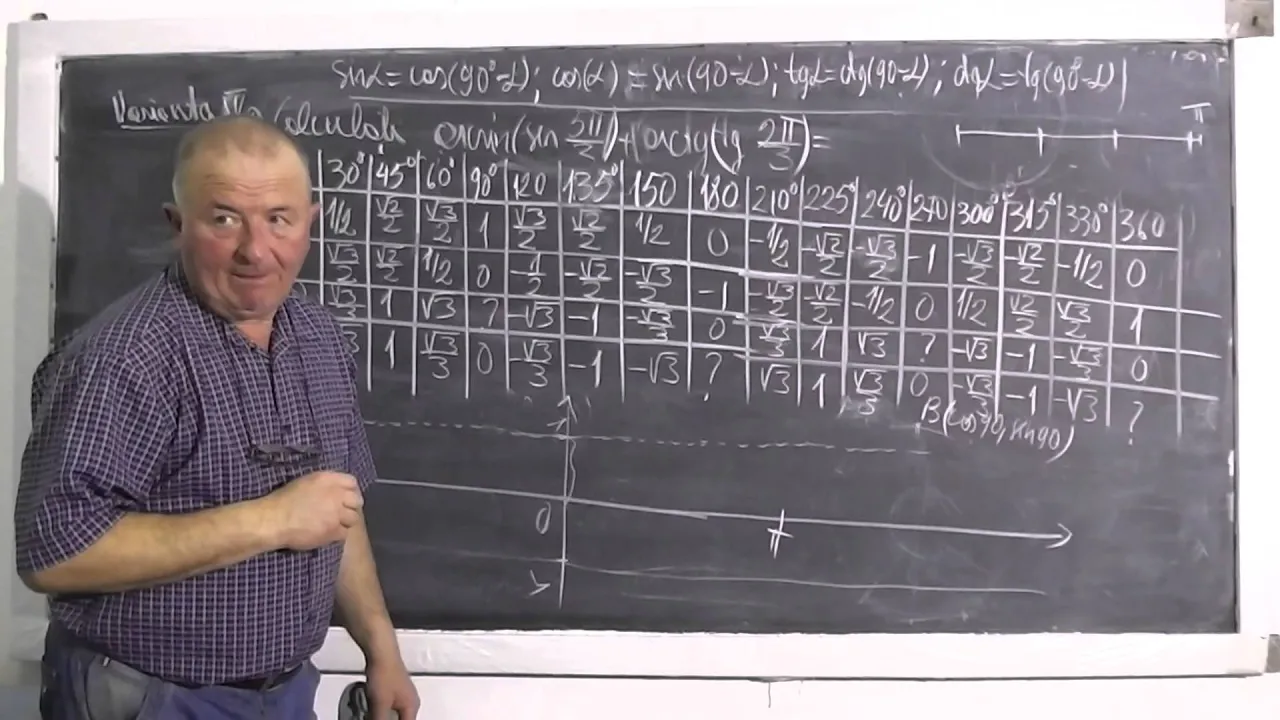 sinα=cos(90°-α); cos(α)=sin(90-α); tgα=ctg(90-α); ctgα=tg(90°-α)
Varianta Calculati arcsin(sin 5π/2)+arctg(tg 2π/3)=
π
30° 45° 60° 90° 120 135° 150 180 210° 225° 240° 270 300° 315° 330° 360
1/2 √2/2 √3/2 1 √3/2 √2/2 1/2 0 -1/2 -√2/2 -√3/2 -1 -√3/2 -√2/2 -1/2 0
√3/2 √2/2 1/2 0 -1/2 -√2/2 -√3/2 -1 -√3/2 -√2/2 -1/2 0 1/2 √2/2 √3/2 1
√3/3 1 √3 ? -√3 -1 -√3/3 0 √3/3 1 √3 ? -√3 -1 -√3/3 0
1 √3/3 0 -√3/3 -1 -√3 ? √3 1 √3/3 0 -√3/3 -1 -√3 ?
B(cos90, sin90)
0
π